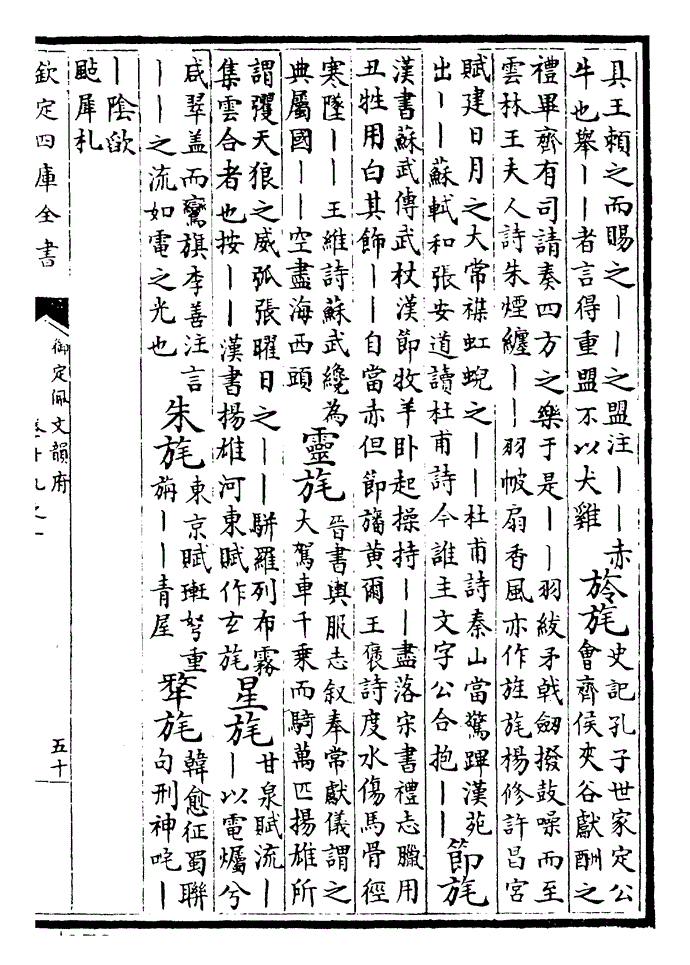 具王賴之而賜之――之盟注――赤
牛也舉――者言得重盟不以犬雞
旍旄
史記孔子世家定公
會齊侯夾谷獻酬之
禮畢齊有司請奏四方之樂于是――羽紱矛戟劒撥鼓噪而至
雲林王夫人詩朱煙纏――羽帔扇香風亦作旌旄楊修許昌宮
賦建日月之大常襟虹蜺之――杜甫詩秦山當驚蹕漢苑
出――蘇軾和張安道讀杜甫詩今誰主文字公合抱――
節旄
漢書蘇武傳武杖漢節牧羊卧起操持――盡落宋書禮志臘用
丑牲用白其飾――自當赤但節旛黄爾王褒詩度水傷馬骨經
寒墜――王維詩蘇武纔為
典屬國――空盡海西頭
靈旄
晉書輿服志叙奉常獻儀謂之
大駕車千乗而騎萬匹揚雄所
謂彏天狼之威弧張曜日之――駢羅列布霧
集雲合者也按――漢書揚雄河東賦作玄旄
星旄
甘泉賦流―
―以電爥兮
咸翠盖而鸞旗李善注言
――之流如電之光也
朱旄
東京賦璅弩重
旃――青屋
犛旄
韓愈征蜀聯
句刑神咤―
―陰燄
颭犀札
欽定四庫全書
御定佩文韻府
卷十九之一
五十